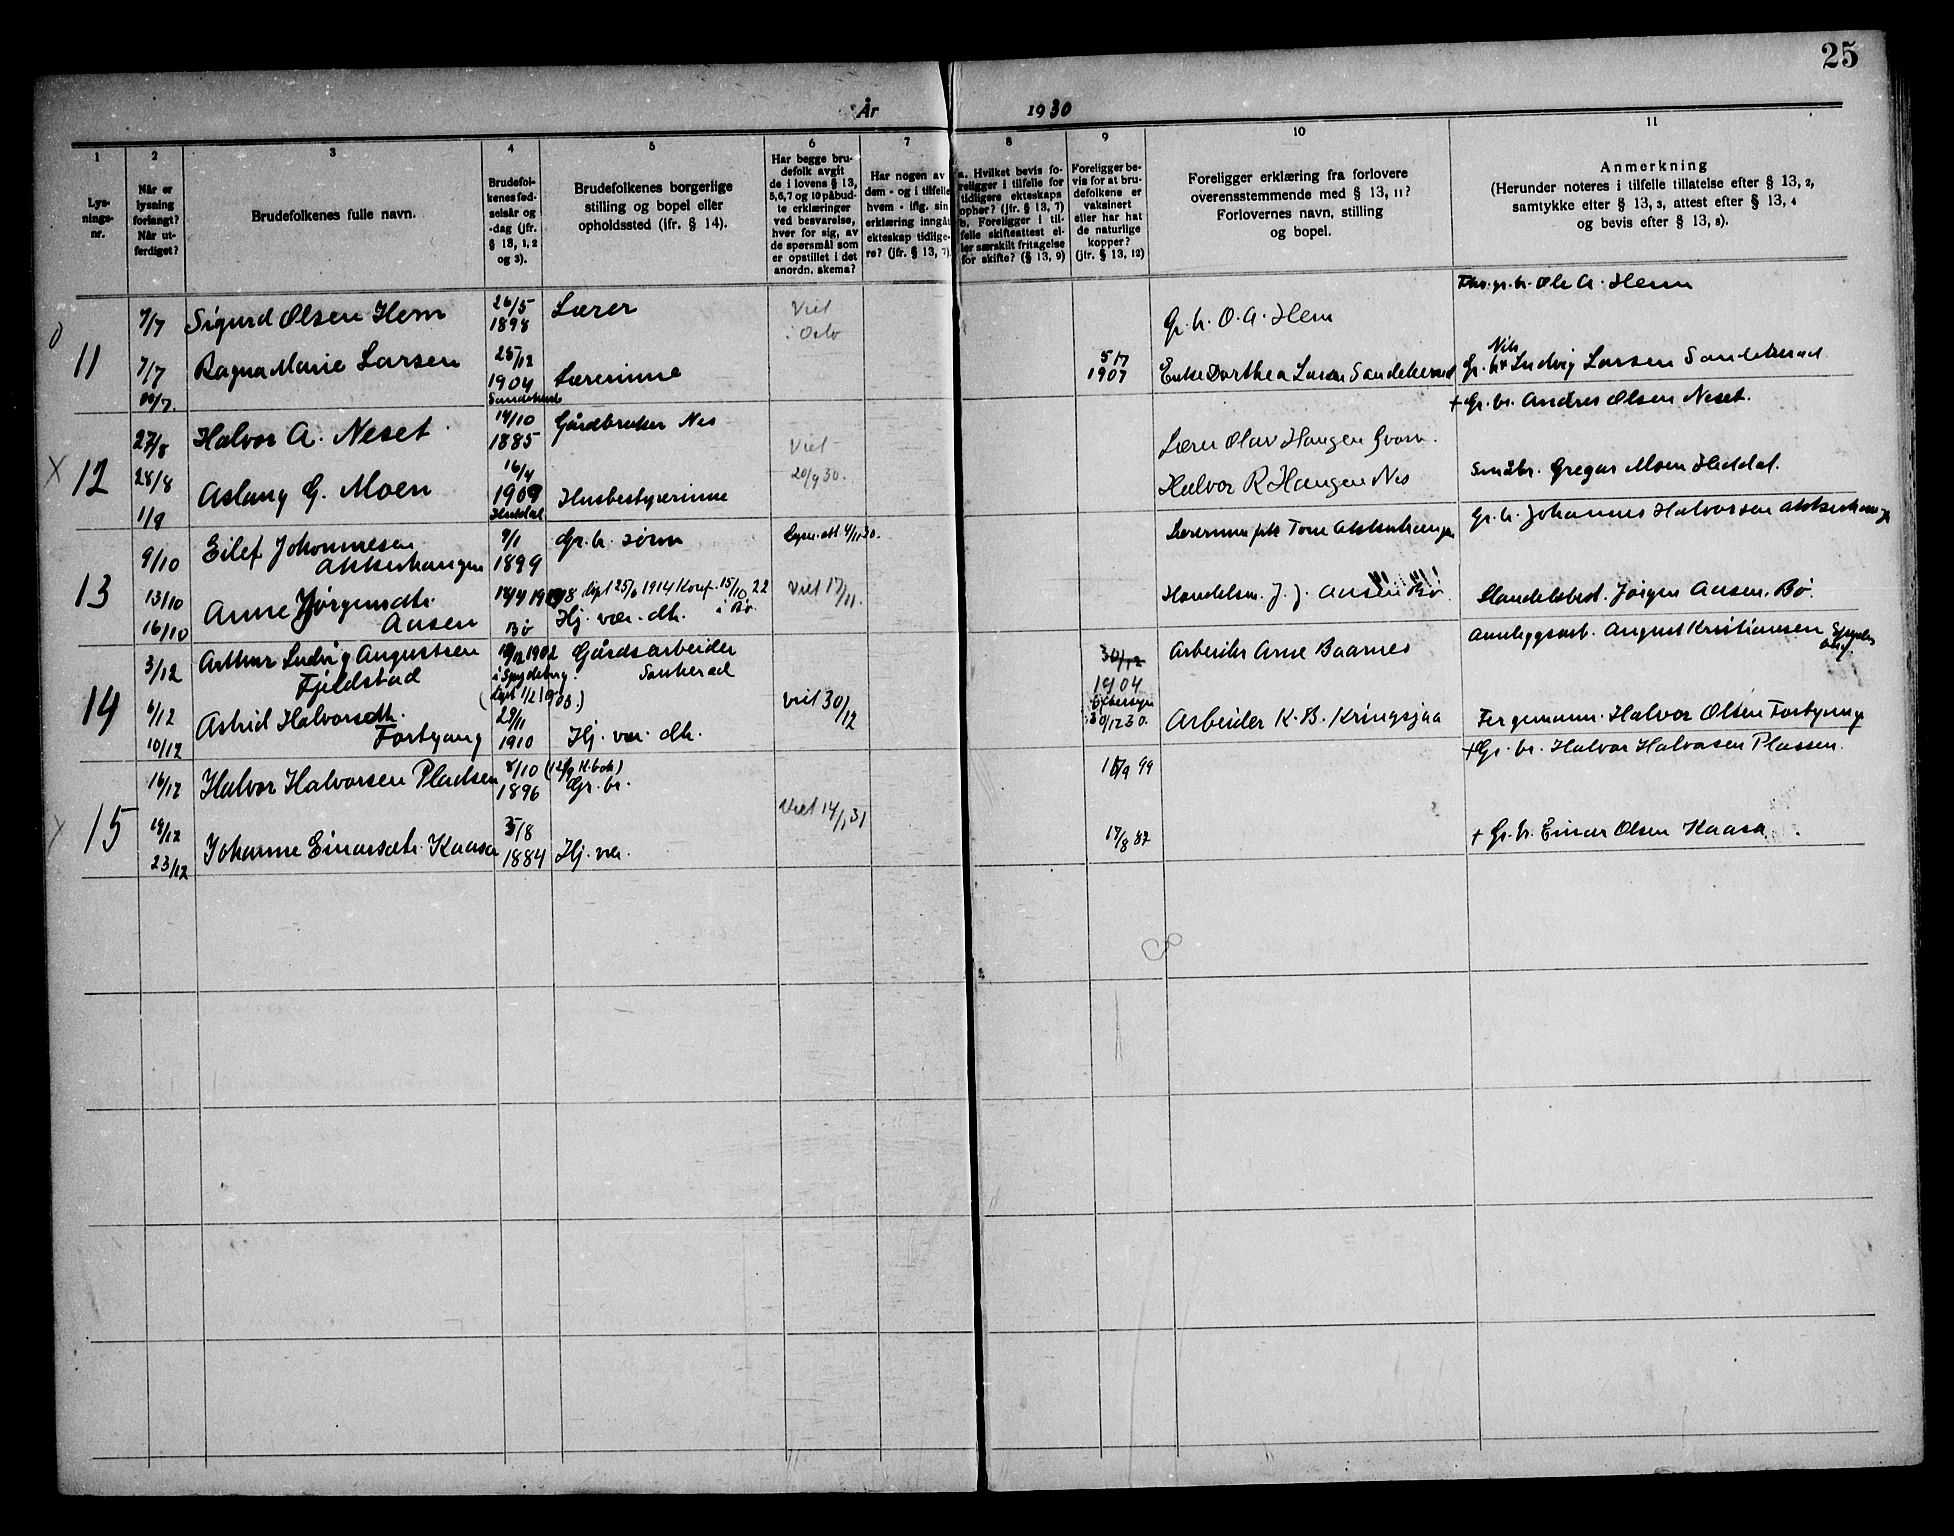 25
År 1930
1 2 3 4 5 6 7 8 9 10 11
Lys-
nings-
nr.
Når er
lysning
forlangt?
Når ut-
ferdiget?
Brudefolkenes fulle navn.
Brudefol-
kenes fød-
selsår og
-dag (jfr.
§ 13, 1, 2
og 3).
Brudefolkenes borgerlige
stilling og bopel eller
opholdssted (jfr. § 14).
Har begge bru-
defolk avgit
de i lovens § 13,
5,6,7 og 10 påbud-
te erklæringer
ved besvarelse,
hver for sig, av
de spørsmål som
er opstillet i det
anordn. skema?
Har nogen av
dem - og i tilfelle
hvem - iflg. sin
erklæring inngåt
ekteskap tidlige-
re? (jfr. § 13, 7)
a. Hvilket bevis fo-
religger i tilfelle for
tidligere ekteskaps
ophør? (jfr. § 13, 7)
b. Foreligger i til-
felle skifteattest el-
ler særskilt fritagelse
for skifte? (§ 13, 9)
Foreligger be-
vis for at bru-
defolkene er
vaksinert
eller har hat
de naturlige
kopper?
(jfr. § 13, 12)
Foreligger erklæring fra forlovere
overensstemmende med § 13, 11?
Forlovernes navn, stilling
og bopel.
Anmerkning
(Herunder noteres i tilfelle tillatelse efter § 13, 2,
samtykke efter § 13, 3, attest efter § 13, 4
og bevis efter § 13, 8).
11
7/7 Sigurd Olsen Hem 26/5 1898 Lærer Viet i Oslo Gr. br. O. A. Hem gr. br. Ole A. Hem
7/7 Ragna Marie Larsen 25/12 1904 Lærerinne 1907 Enke Dorthea Larsen Sandekerad Gr. br. Nils Ludvig Larsen Sandekerad
12
27/8 Halvor A. Neset 14/10 1885 Gårdbruker Nes Viet Lærer Olav Haugen Gvarv. + Gr. br. Andres Olsen Neset.
28/8 Aslaug G. Moen 16/4 1909 Husbestyrerinne 20/9 30. Halvor R Haugen Nes Småbr. Gregar Moen Heddal.
1/9 Heddal
13
9/10 Eilef Johannesen Akkerhaugen 9/1 1899 Gr. br. sønn Lysn. att. 4/11 30. Lærerinne frk Tone Akkerhaugen Gr. br. Johannes Halvorsen Akkerhaugen
13/10 Anne Jørgensdtr. Aasen 1908 døpt 25/6 1914 Konf. 15/10 22 i Bø. Viet 17/11. Handelsm. J. J. Aasen Bø. Handelsbest. Jørgen Aasen, Bø.
16/10 Bø Hj. vær. dtr.
14
3/12 Arthur Ludvig Augustsen Fjeldstad 1902 i Spydeberg. Gårdsarbeider Sauherad 1904 Arbeider Arne Baarnes Anleggsarb. August Kristiansen
6/12 Astrid Halvorsdtr. Fortgang 29/11 1910 Hj. vær. dtr. Viet 30/12 30/12 30. Arbeider K. B. Kringsjaa Fergemann. Halvor Olsen Fortgang
10/12
15
16/12 Halvor Halvorsen Pladsen 8/10 (12/9 K. bok) 1896 Gr. br. 99 + Gr. br. Halvor Halvorsen Plassen.
Viet 14/1 31
19/12 Johanne Einarsdtr. Kaasa 5/8 1884 Hj. vær. 17/8 87 + Gr. br. Einar Olsen Kaasa.
23/12